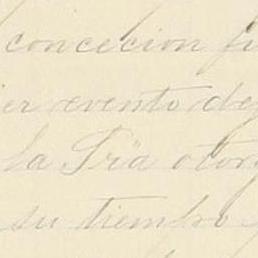 concecion fi
er evento de
la Sría otor
su tiempo